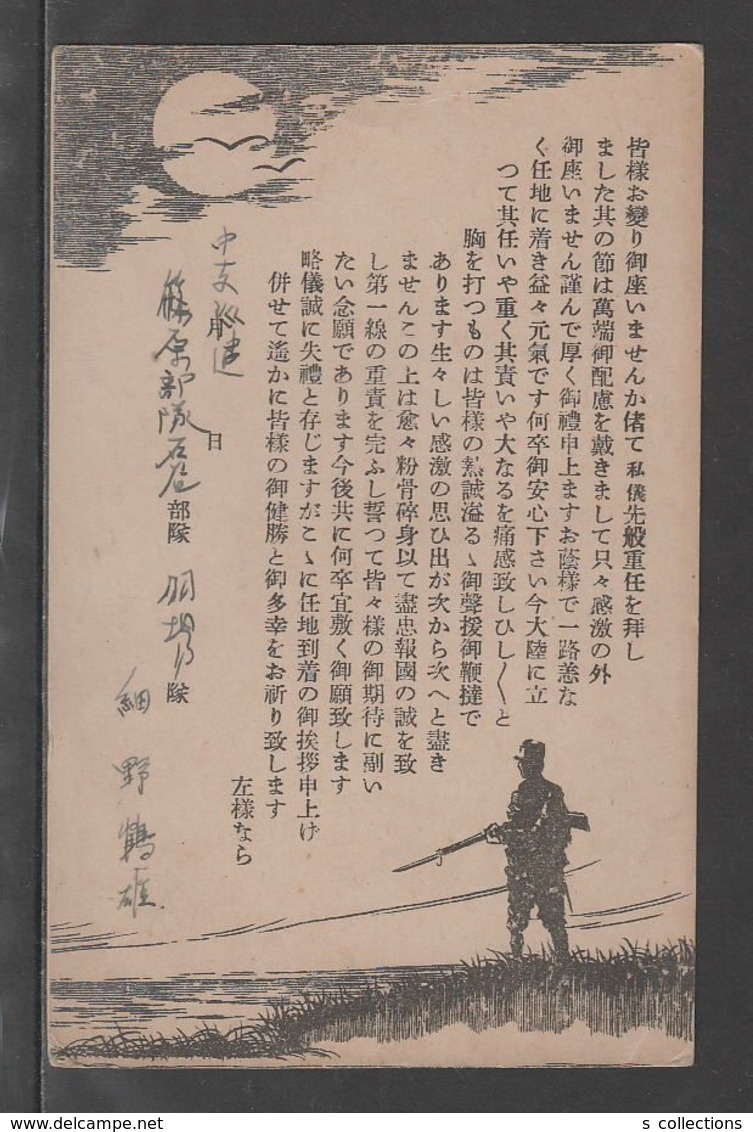 皆樣お變り御座いませんか偖て私儀先般重任を拜し
ました其の節は萬端御配慮を戴きまして只々感激の外
御座いません謹んで厚く御禮申上ますお蔭樣で一路恙な
く任地に着き益々元氣です何卒御安心下さい今大陸に立
つて其任いや重く其責いや大なるを痛感致しひし〱と
胸を打つものは皆樣の熱誠溢るゝ御聲援御鞭撻で
あります生々しい感激の思ひ出が次から次へと盡き
ませんこの上は愈々粉骨碎身以て盡忠報國の誠を致
し第一線の重責を完ふし誓つて皆々樣の御期待に副い
たい念願であります今後共に何卒宜敷く御願致します
略儀誠に失禮と存じますがこゝに任地到着の御挨拶申上げ
併せて遙かに皆樣の御健勝と御多幸をお祈り致します
左樣なら
月 日
中支派遣
藤原部隊 部隊 羽場 隊
細野鶴雄
s collections